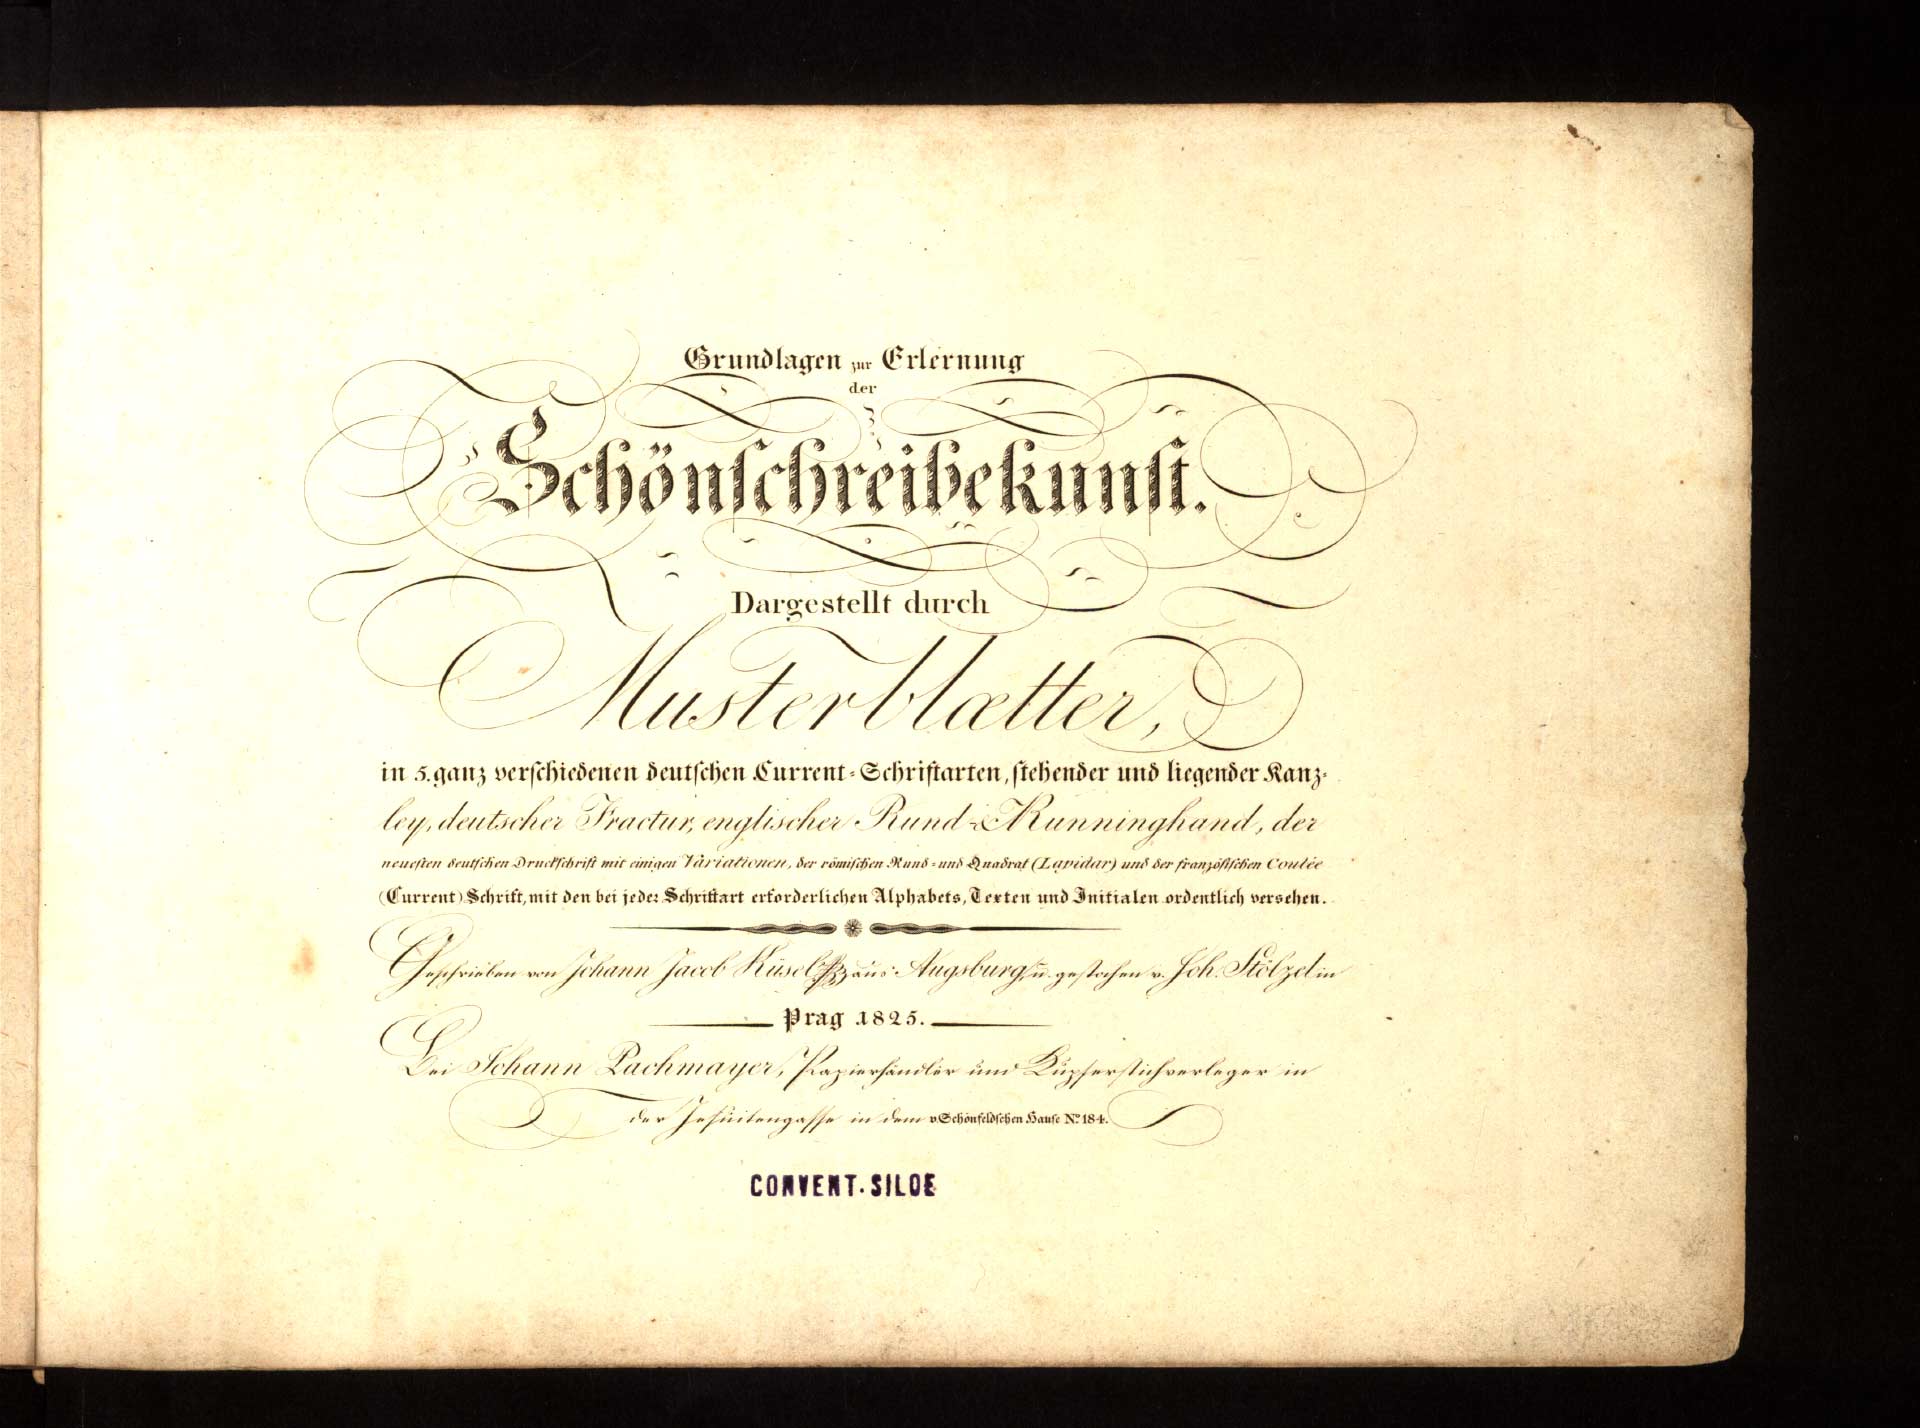 Grundlagen zur Erlernung
der
Schönſchreibekunſt.
Dargestellt durch
Musterblætter,
in 5. ganz verſchiedenen deutſchen Current-Schriftarten, ſtehender und liegender Kanz-
ley, deutscher Fractur, englischer Rund- & Running hand, der
neueſten deutſchen Druckſchrift mit einigen Variationen, der römiſchen Rund- und Quadrat (Lapidar) und der franzöſiſchen Coulée
(Current) Schrift, mit den bei jeder Schriftart erforderlichen Alphabets, Texten und Initialen ordentlich versehen.
Geſchrieben von Johann Jacob Küsel aus Augsburg, u. geſtochen v. Joh. Stölzel in
Prag 1825.
Bei Johann Pachmayer, Papierhändler und Kupferstichverleger in
der Jeſuitengaſſe in dem v Schönfeldſchen Hauſe No. 184.
CONVENT. SILOE